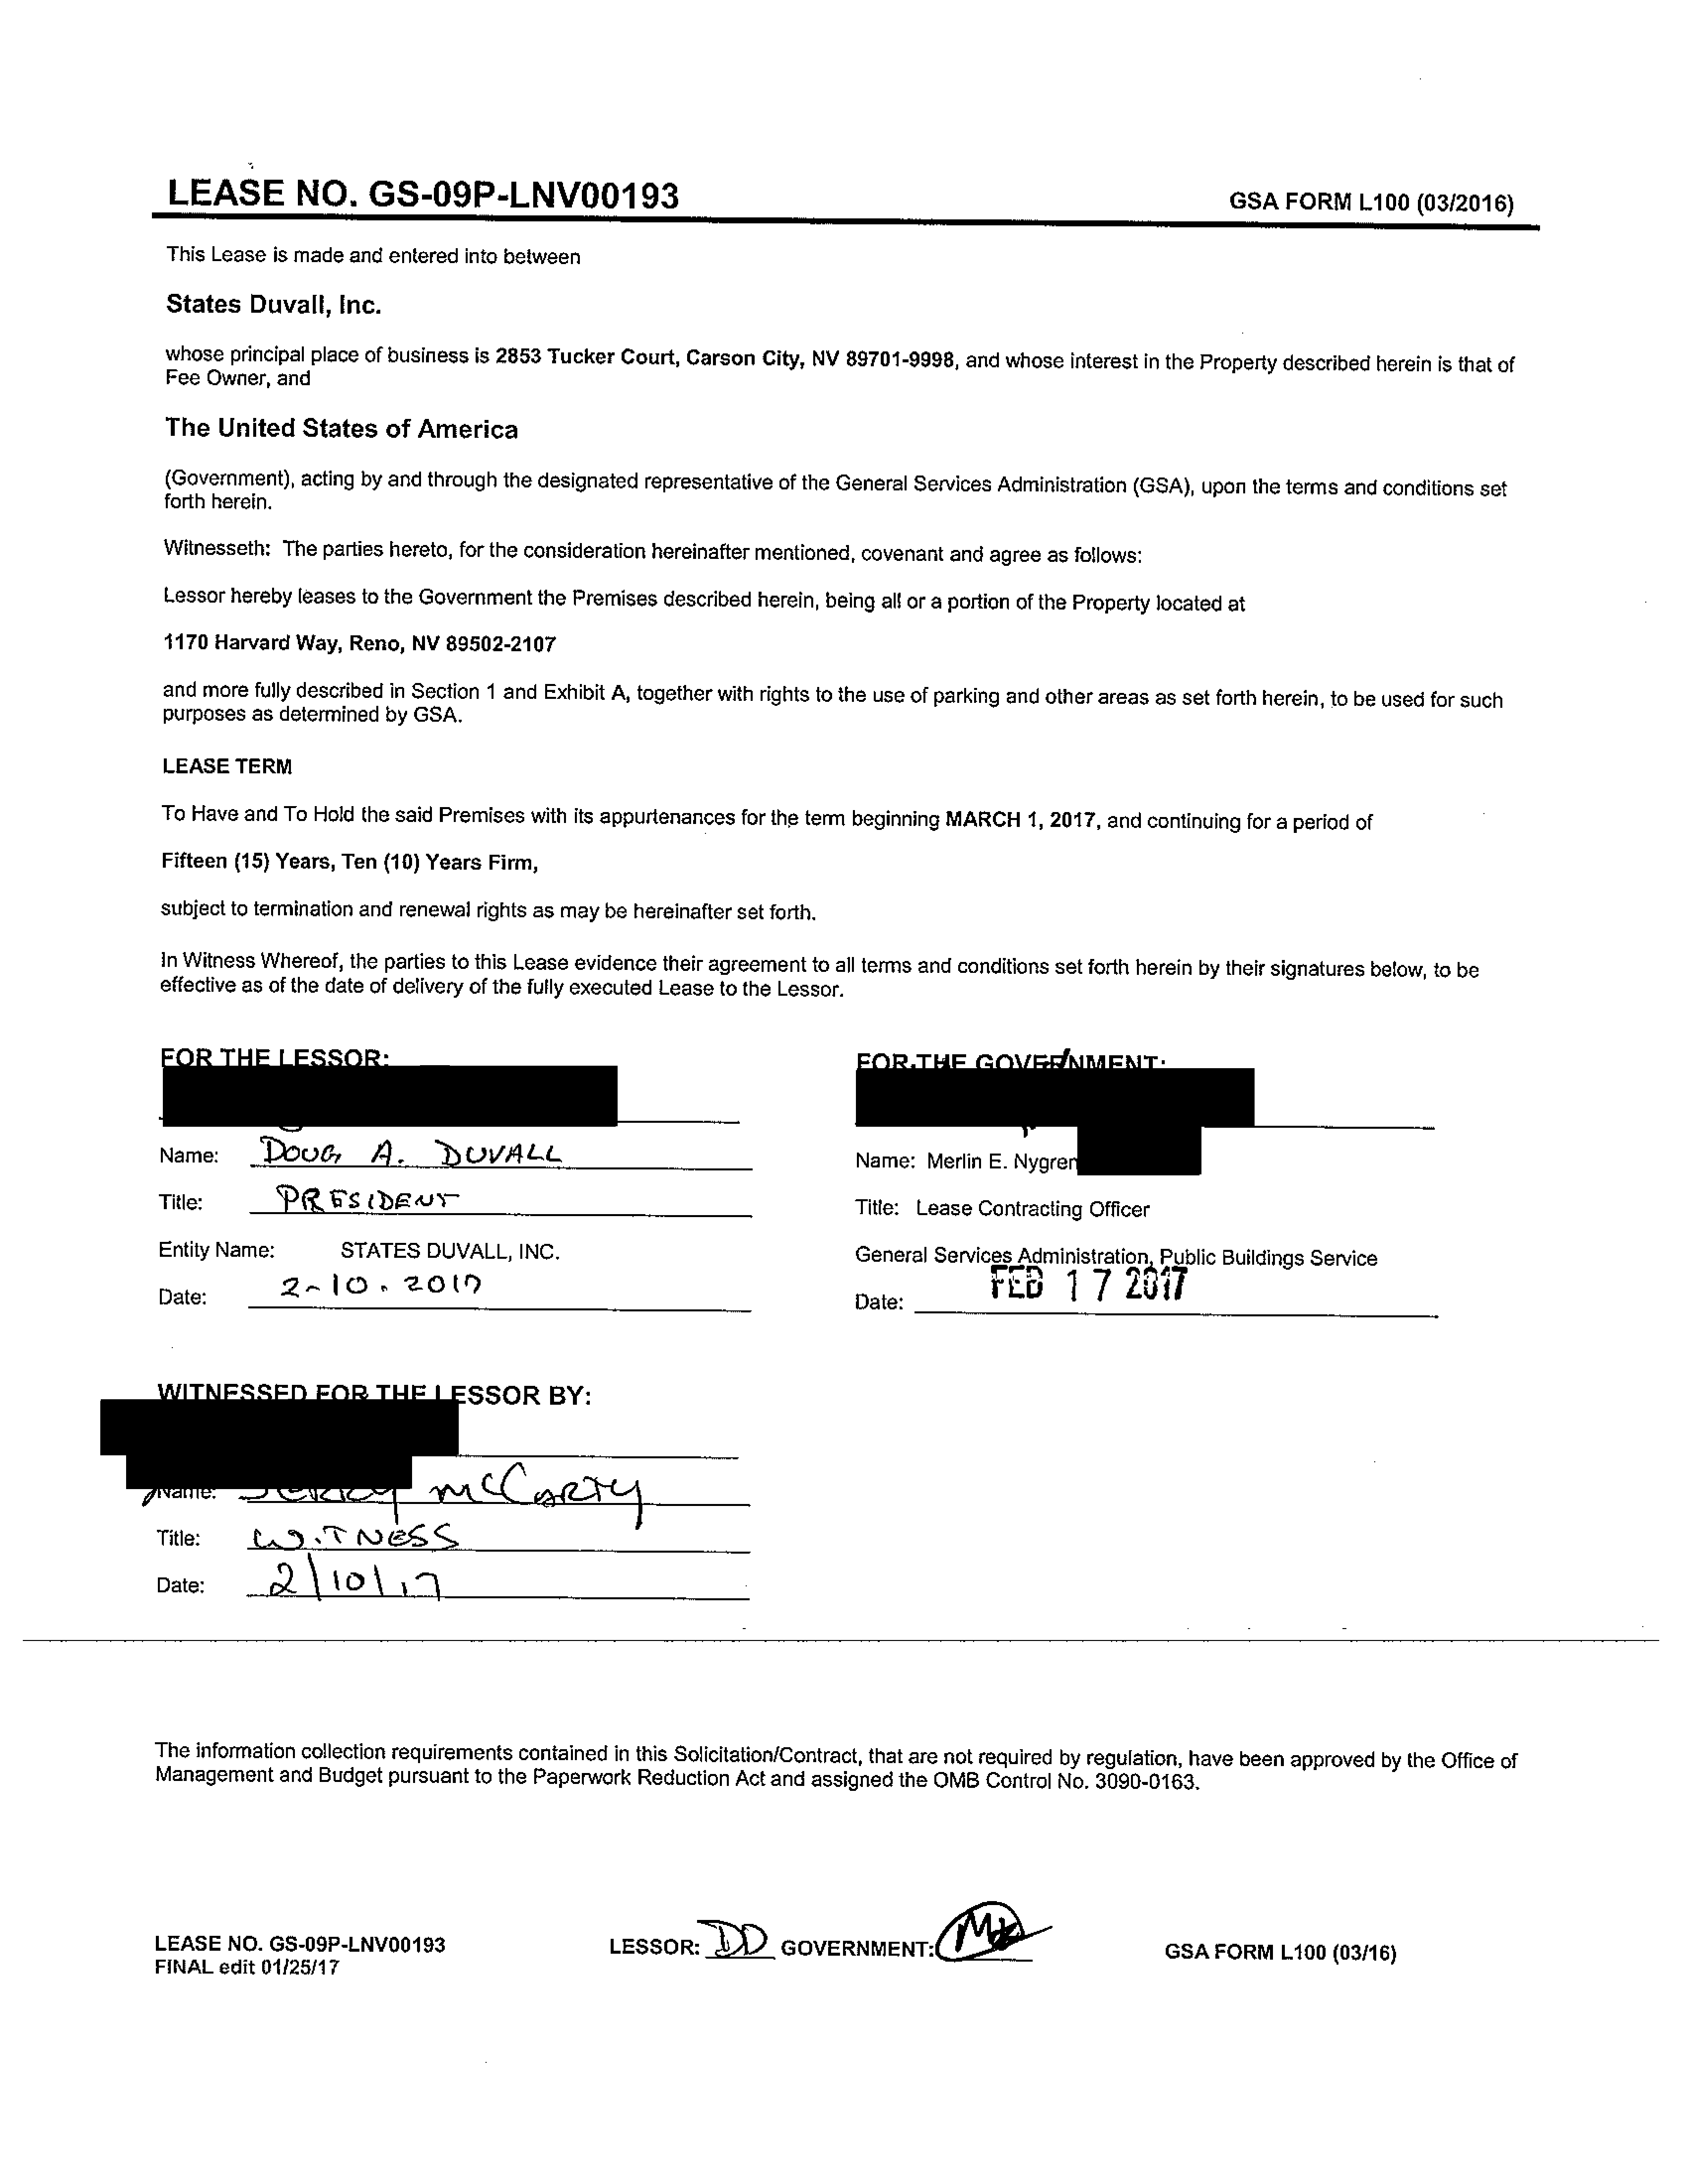 LEASE NO. GS-09P-LNV00193
GSA FORM L100 (03/2016)
This Lease is made and entered into between
States Duvall, Inc.
whose principal place of business is 2853 Tucker Court, Carson City, NV 89701-9998, and whose interest in the Property described herein is that of
Fee Owner, and
The United States of America
(Government), acting by and through the designated representative of the General Services Administration (GSA), upon the terms and conditions set
forth herein.
Witnesseth: The parties hereto, for the consideration hereinafter mentioned, covenant and agree as follows:
Lessor hereby leases to the Government the Premises described herein, being all or a portion of the Property located at
1170 Harvard Way, Reno, NV 89502-2107
and more fully described in Section 1 and Exhibit A, together with rights to the use of parking and other areas as set forth herein, to be used for such
purposes as determined by GSA.
LEASE TERM
To Have and To Hold the said Premises with its appurtenances for the term beginning MARCH 1, 2017, and continuing for a period of
Fifteen (15) Years, Ten (10) Years Firm,
subject to termination and renewal rights as may be hereinafter set forth.
In Witness Whereof, the parties to this Lease evidence their agreement to all terms and conditions set forth herein by their signatures below, to be
effective as of the date of delivery of the fully executed Lease to the Lessor.
FOR THE LESSOR:
Name: DOUG A. DUVALL
Title: PRESIDENT
Entity Name: STATES DUVALL, INC.
Date: 2-10.2017
FOR THE GOVERNMENT:
Name: Merlin E. Nygren
Title: Lease Contracting Officer
General Services Administration, Public Buildings Service
Date: FEB 17 2017
WITNESSED FOR THE LESSOR BY:
Name: McCarty
Title: WITNESS
Date: 2/10/17
The information collection requirements contained in this Solicitation/Contract, that are not required by regulation, have been approved by the Office of
Management and Budget pursuant to the Paperwork Reduction Act and assigned the OMB Control No. 3090-0163.
LEASE NO. GS-09P-LNV00193
FINAL edit 01/25/17
LESSOR: DD GOVERNMENT:
GSA FORM L100 (03/16)